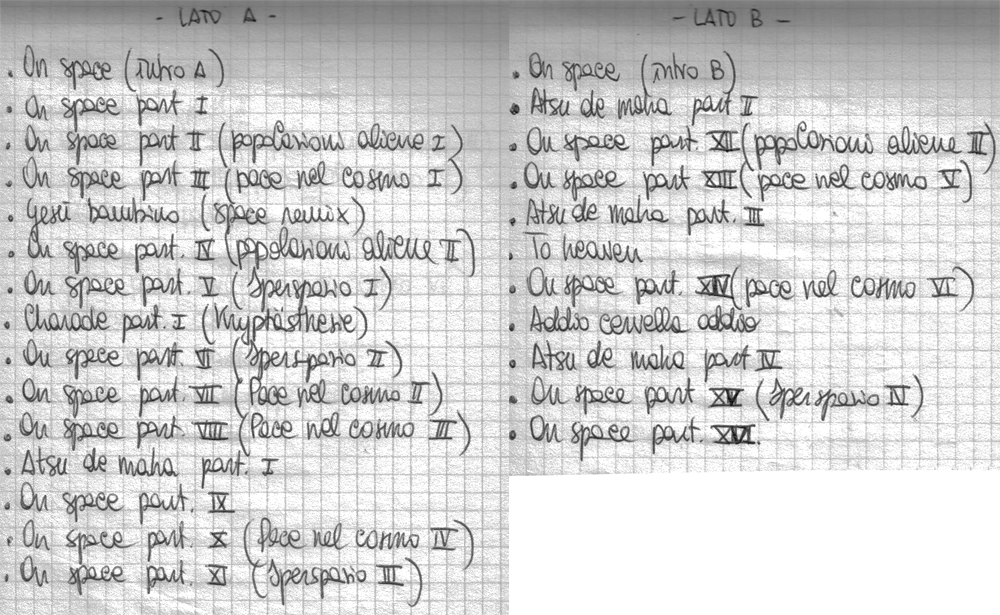 - LATO A -
• On space (intro A)
• On space part I
• On space part II (popolazioni aliene I)
• On space part III (pace nel cosmo I)
• Gesù bambino (space remix)
• On space part. IV (popolazioni aliene II)
• On space part. V (Iperspazio I)
• Charade part. I (Kryptästhesie)
• On space part. VI (Iperspazio II)
• On space part. VII (Pace nel cosmo II)
• On space part. VIII (Pace nel cosmo III)
• Atsu de maha part. I
• On space part. IX
• On space part. X (Pace nel cosmo IV)
• On space part. XI (Iperspazio III)
- LATO B -
• On space (intro B)
• Atsu de maha part II
• On space part. XII (popolazioni aliene III)
• On space part XIII (pace nel cosmo V)
• Atsu de maha part. III
• To heaven
• On space part. XIV (pace nel cosmo VI)
• Addio cervella addio
• Atsu de maha part IV
• On space part XV (Iperspazio IV)
• On space part. XVI.